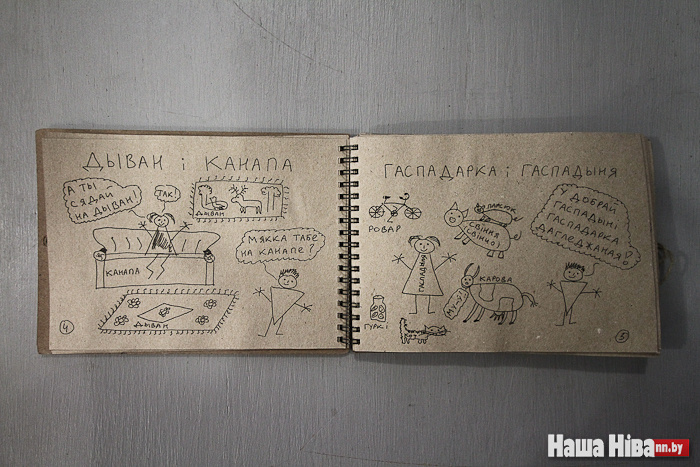 ДЫВАН і КАНАПА
А ТЫ
СЯДАЙ
НА ДЫВАН!
ТАК!
ДЫВАН
МЯККА ТАБЕ
НА КАНАПЕ?
КАНАПА
ДЫВАН
4
ГАСПАДАРКА і ГАСПАДЫНЯ
РОВАР
ПАРСЮК
СВІННЯ
ГАСПАДЫНЯ
У ДОБРАЙ
ГАСПАДЫНІ
ГАСПАДАРКА
ДАГЛЕДЖАНАЯ!
КАРОВА
МУ-У!
ГУРКІ
КОТ
5
Наша Ніва nn.by